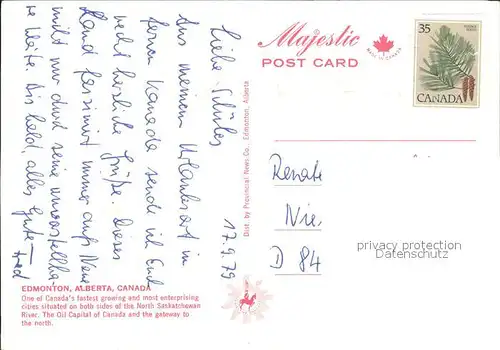 Majestic
POST CARD
MADE IN CANADA
35
CANADA
17.9.79
Liebe
Aus meinem Urlaubsort im
fernen Kanada sende ich Euch
recht herzliche Grüße. Dieses
Land fasziniert immer aufs Neue
nicht nur durch seine unvorstellba-
re Weite. Bis bald, alles Gute –
Fred
Dist. by Provincial News Co., Edmonton, Alberta
Renate
Nie.
D 84
privacy protection
Datenschutz
EDMONTON, ALBERTA, CANADA
One of Canada's fastest growing and most enterprising
cities situated on both sides of the North Saskatchewan
River. The Oil Capital of Canada and the gateway to
the north.